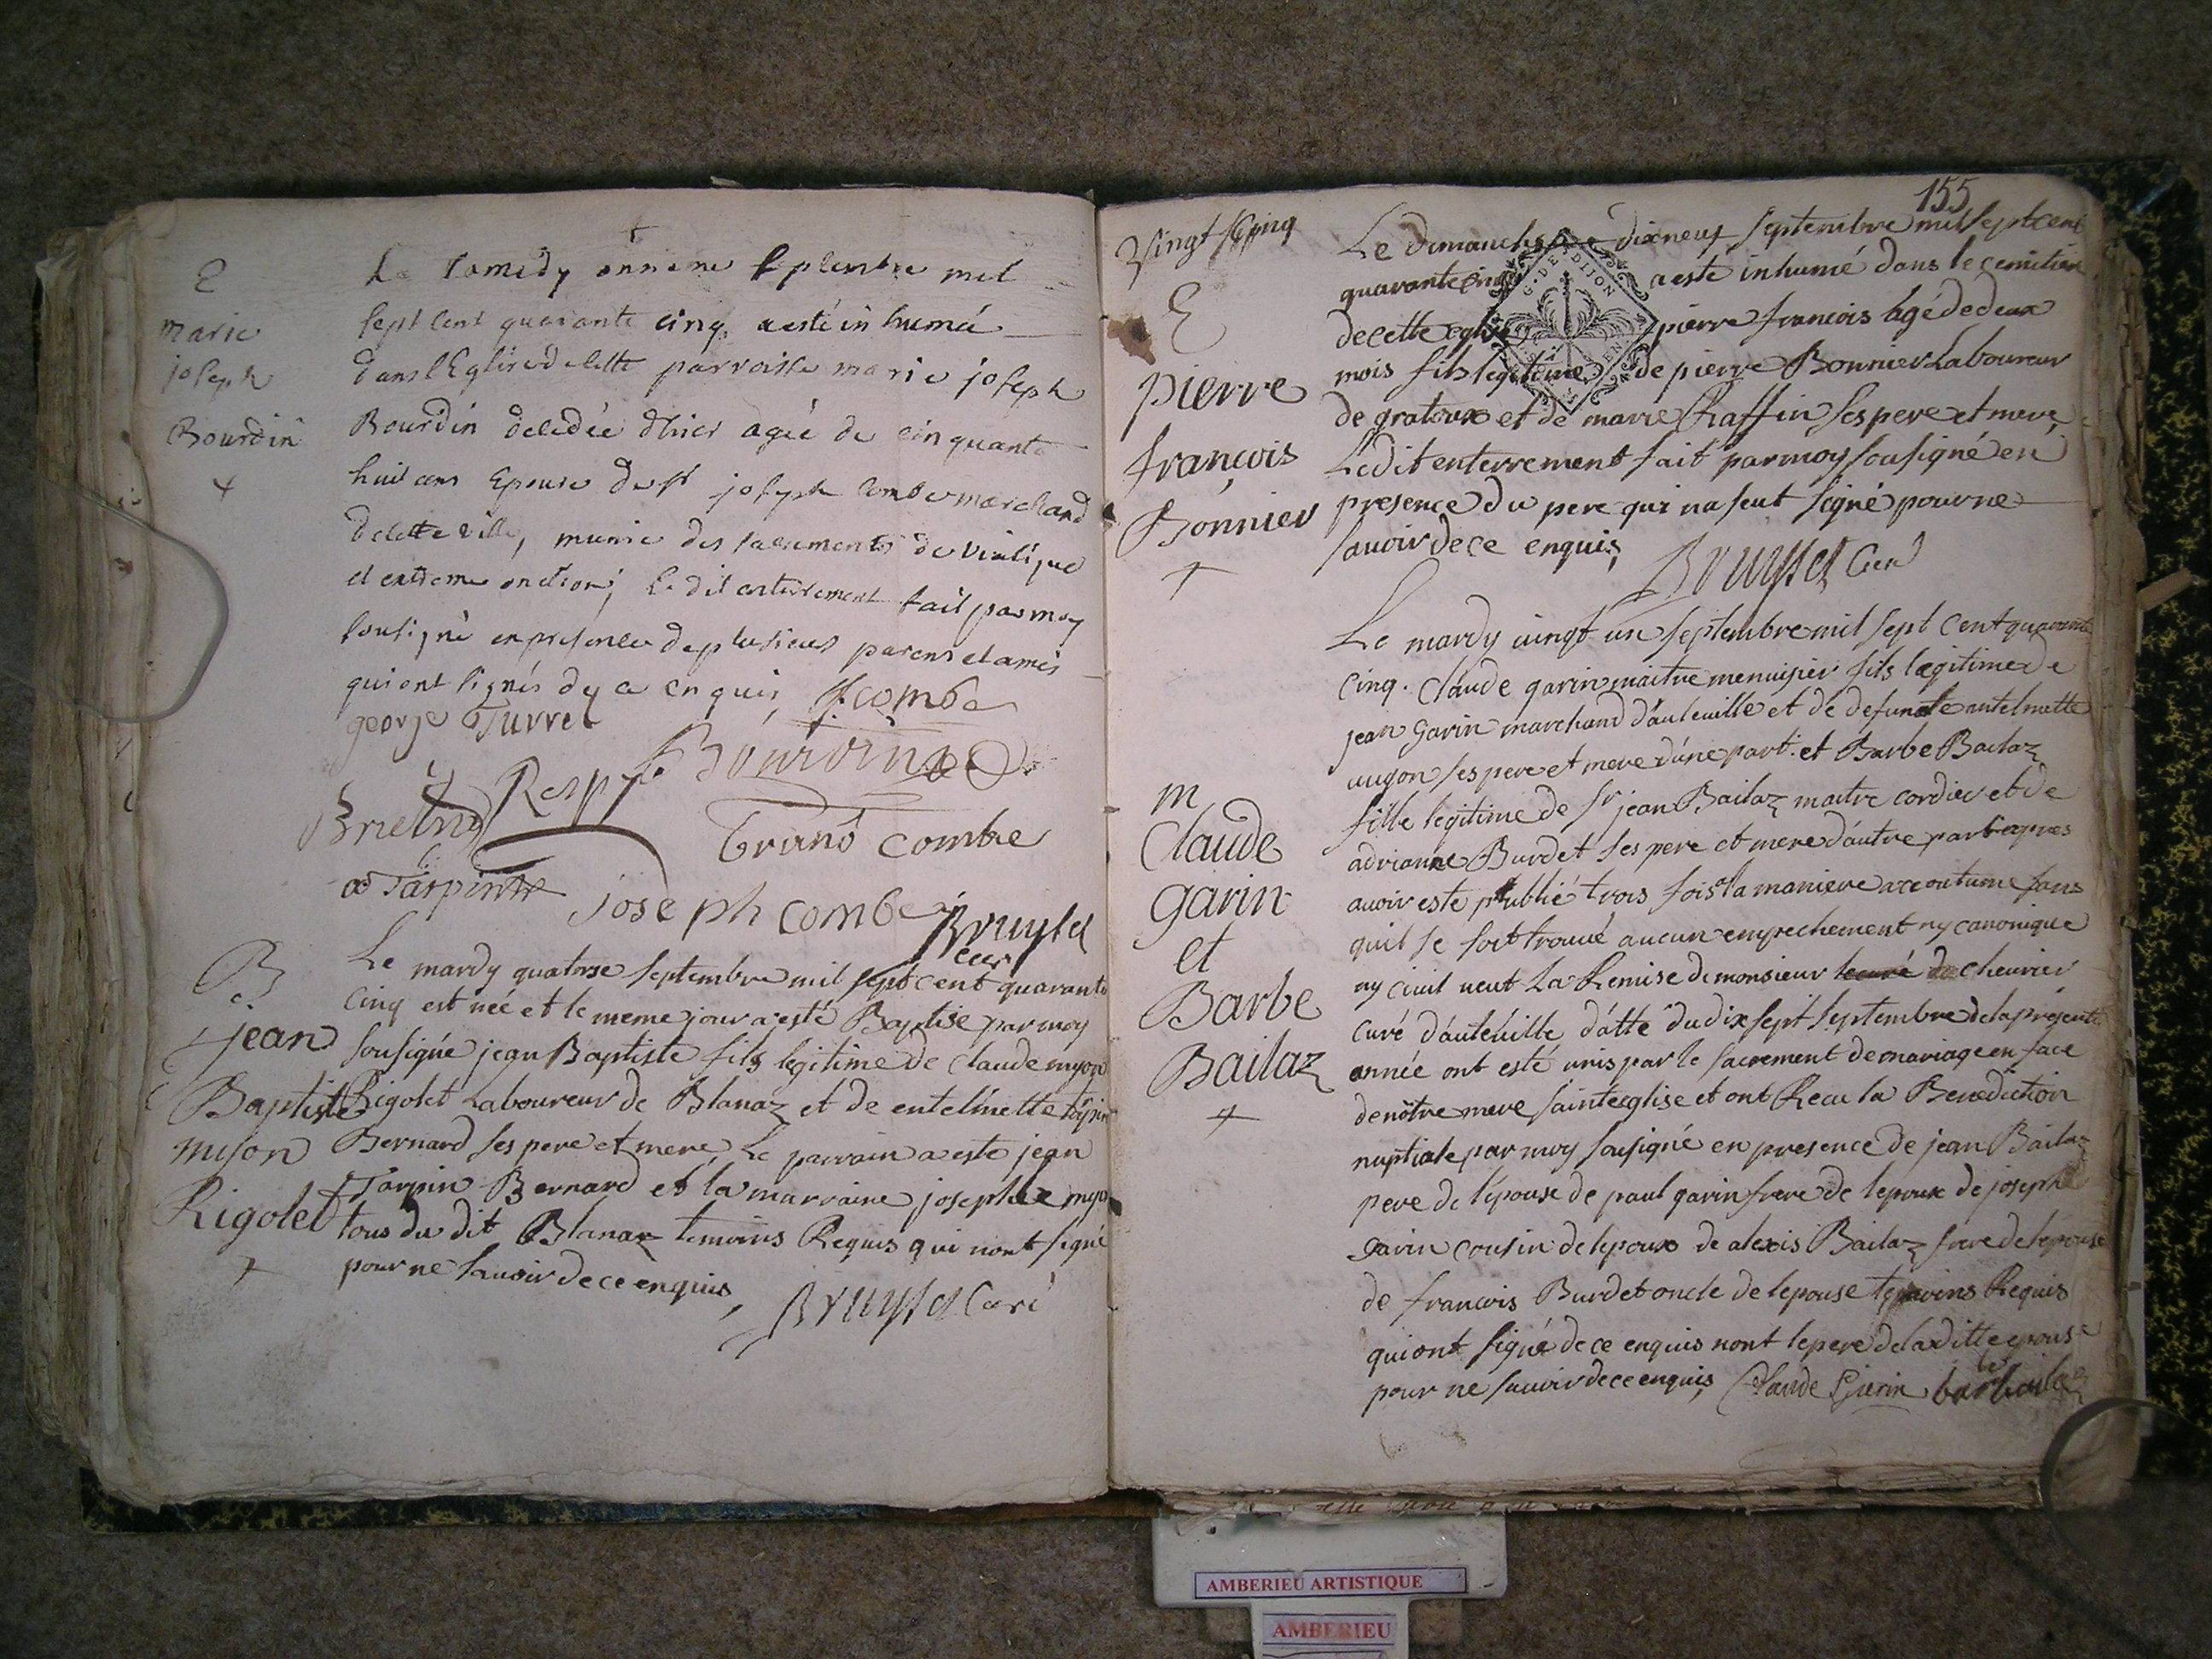 E
marie
joseph
Bourdin
Le Samedy onzieme Septembre mil
sept cent quarante cinq, a esté inhumée
dans l'Eglise de cette parroisse marie joseph
Bourdin decedée d'hier agée de cinquante
huit ans Epouse de Sr joseph Combe marchand
de cette ville, munie des sacrements de viatique
et extreme onction; le dit enterrement fait par moy
sousigné en presence de plusieurs parens et amis
qui ont signés de ce enquis, f. combe
george Turrel
Bourdin
Brielno Resp
Grand Combe
Tarpin
joseph combe
Bruyset
cure
B
jean
Baptiste
myon
Rigolet
Le mardy quatorse septembre mil sept cent quarante
cinq est née et le meme jour a esté Baptise par moy
sousigné jean Baptiste fils legitime de Claude myon
Rigolet Laboureur de Blanaz et de entelmette tarpin
Bernard ses pere et mere, Le parrain a este jean
Tarpin Bernard et la marraine josephte myon
tous du dit Blanaz temoins Requis qui nont signé
pour ne scavoir de ce enquis,
Bruyset Curé
155
Vingt
E
pierre
françois
Bonnier
Le dimanche dixneuf septembre mil sept cent
quarante cinq a este inhumé dans le cemitiere
de cette eglise pierre francois agé de deux
mois fils legitime de pierre Bonnier Laboureur
de gratoux et de marie Raffin ses pere et mere,
Ledit enterrement fait par moy sousigné en
presence du pere qui na seut signé pour ne
savoir de ce enquis,
Bruyset Curé
G. DE DIJON
m
Claude
garin
et
Barbe
Bailaz
Le mardy vingt un septembre mil sept Cent quarante
cinq. Claude garin maitre menuisier fils legitime de
jean Garin marchand d'auteuille et de defuncte antelmette
ugon ses pere et mere d'une part. et Barbe Bailaz
fille legitime de Sr jean Bailaz maitre cordier et de
adrianne Burdet ses pere et mere d'autre part apres
avoir este publié trois fois a la maniere accoutume sans
quil se soit trouvé aucun empechement ny canonique
ny civil veut La Remise de monsieur chevrier
curé d'auteuille datte du dix sept septembre de la présente
année ont esté unis par le sacrement de mariage en face
de nôtre mere sainte eglise et ont Receu la Benediction
nuptiale par moy sousigné en presence de jean Bailaz
pere de l'épouse de paul garin frere de lepoux de joseph
garin cousin de lepoux de alexis Bailaz frere de lepouse
de francois Burdet oncle de lepouse temoins Requis
qui ont signé de ce enquis nont le pere de la ditte epouse
pour ne scavoir de ce enquis, Claude Garin barbe bailaz
AMBERIEU ARTISTIQUE
AMBERIEU